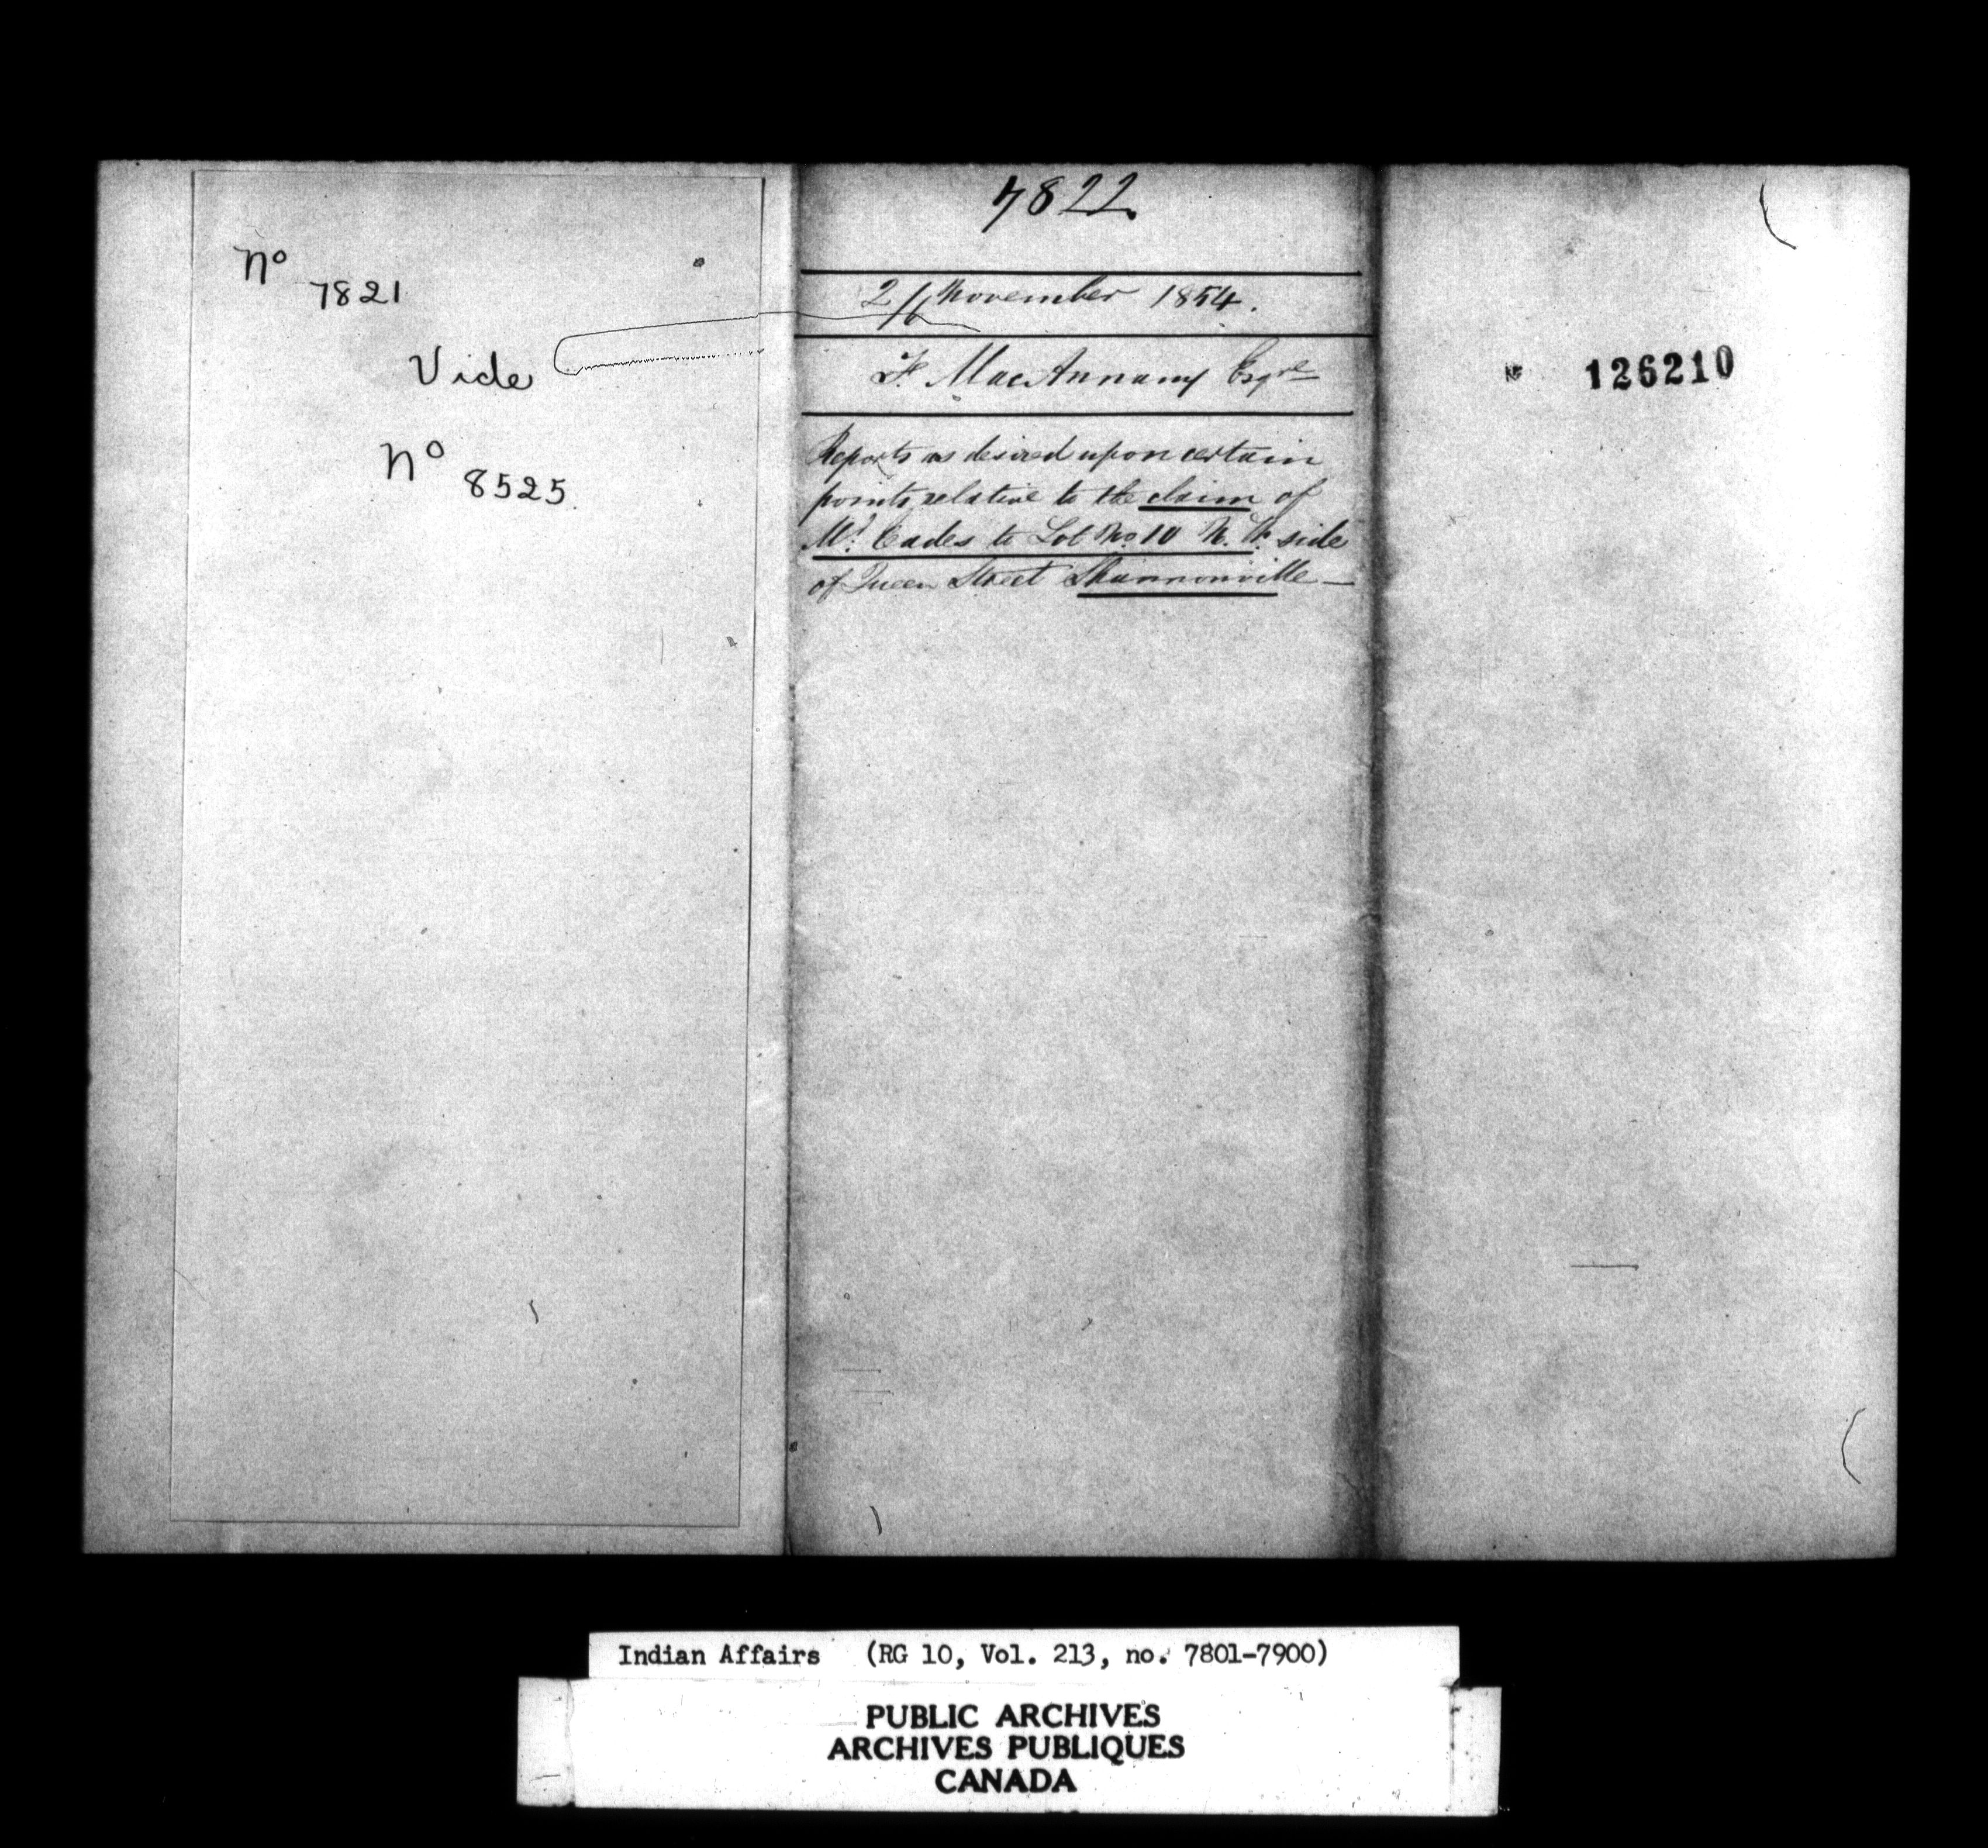 No
7821
Vide
No
8525
7822
2/6 November 1854.
T. MacAnnany Esqre
Reports as desired upon certain
points relative to the claim of
Mr. Eades to Lot No. 10 N. side
of Queen Street Shannonville
126210
Indian Affairs (RG 10, Vol. 213, no. 7801-7900)
PUBLIC ARCHIVES
ARCHIVES PUBLIQUES
CANADA